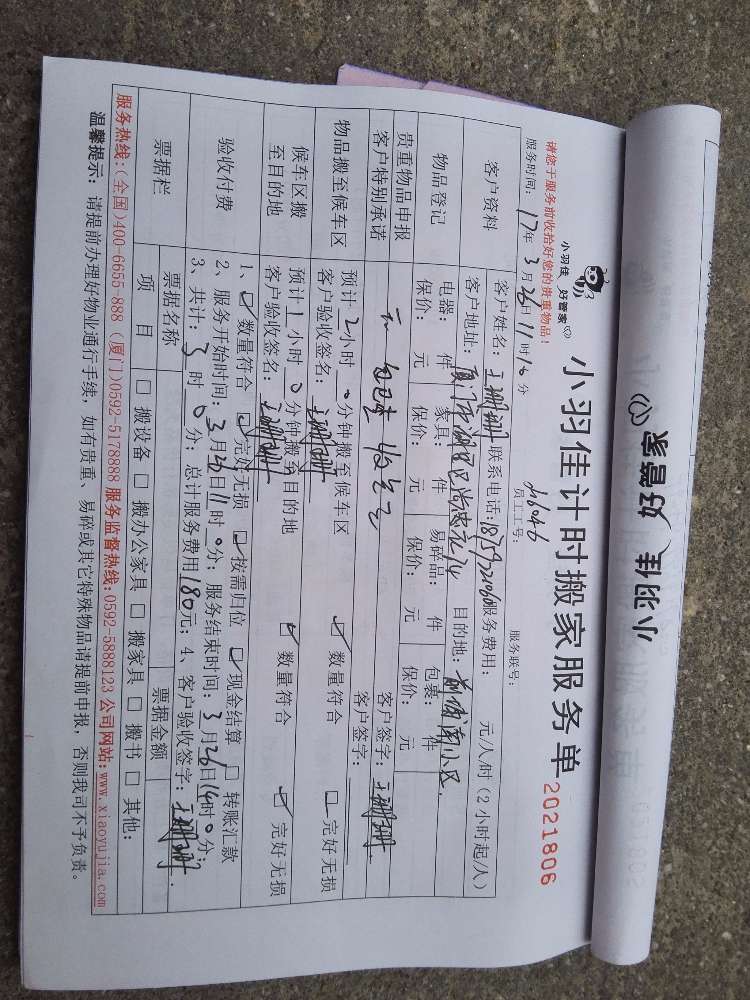 小羽佳 好管家
小羽佳 好管家
小羽佳计时搬家服务单 2021806
请您于服务前收拾好您的贵重物品！ 员工工号： 服务联号：
服务时间：17年3月26日11时10分
客户资料 客户姓名：王珊珊 联系电话： 服务费用： 元/人/时（2小时起/人）
客户地址： 目的地：
物品登记 电器： 件 家具： 件 易碎品： 件 包裹： 件
保价： 元 保价： 元 保价： 元 保价： 元
贵重物品申报 无 客户签字：王珊珊
客户特别承诺 客户签字：
物品搬至候车区 预计2小时0分钟搬至候车区 ☑ 数量符合 □ 完好无损
客户验收签名：王珊珊
候车区搬至目的地 预计1小时0分钟搬至目的地 ☑ 数量符合 ☑ 完好无损
客户验收签名：王珊珊
验收付费 1、☑ 数量符合 ☑ 完好无损 ☑ 按需归位 ☑ 现金结算 □ 转账汇款
2、服务开始时间：3月26日11时0分；服务结束时间：3月26日14时0分；
3、共计：3时0分；总计服务费用180元；4、客户验收签字：王珊珊
票据栏 票据名称 票据金额
项目 □ 搬设备 □ 搬办公家具 □ 搬家具 □ 搬书 □ 其他：
服务热线：（全国）400-6655-888（厦门）0592-5178888 服务监督热线：0592-5888123 公司网站：www.xiaoyujia.com
温馨提示：请提前办理好物业通行手续，如有贵重、易碎或其它特殊物品请提前申报，否则我司不予负责。